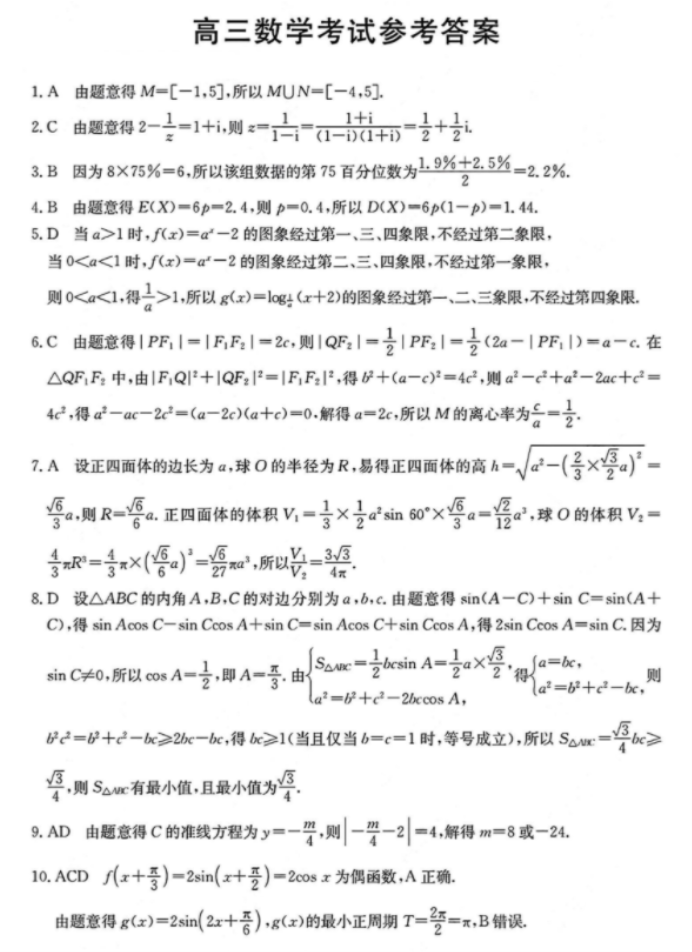 高三数学考试参考答案
1. A 由题意得 M=[-1,5],所以 M∪N=[-4,5].
2. C 由题意得 2-1/z=1+i,则 z=1/(1-i)=(1+i)/((1-i)(1+i))=1/2+1/2i.
3. B 因为 8×75%=6,所以该组数据的第 75 百分位数为(1.9%+2.5%)/2=2.2%.
4. B 由题意得 E(X)=6p=2.4,则 p=0.4,所以 D(X)=6p(1-p)=1.44.
5. D 当 a>1 时,f(x)=aˣ-2 的图象经过第一、三、四象限,不经过第二象限,
当 0<a<1 时,f(x)=aˣ-2 的图象经过第二、三、四象限,不经过第一象限,
则 0<a<1,得1/a>1,所以 g(x)=log_(1/a)(x+2)的图象经过第一、二、三象限,不经过第四象限.
6. C 由题意得|PF₁|=|F₁F₂|=2c,则|QF₂|=1/2|PF₂|=1/2(2a-|PF₁|)=a-c. 在
△QF₁F₂ 中,由|F₁Q|²+|QF₂|²=|F₁F₂|²,得 b²+(a-c)²=4c²,则 a²-c²+a²-2ac+c²=
4c²,得 a²-ac-2c²=(a-2c)(a+c)=0.解得 a=2c,所以 M 的离心率为c/a=1/2.
7. A 设正四面体的边长为 a,球 O 的半径为 R,易得正四面体的高 h=√(a²-(2/3×√3/2a)²)=
√6/3a,则 R=√6/6a. 正四面体的体积 V₁=1/3×1/2a²sin 60°×√6/3a=√2/12a³,球 O 的体积 V₂=
4/3πR³=4/3π×(√6/6a)³=√6/27πa³,所以V₁/V₂=3√3/4π.
8. D 设△ABC 的内角 A,B,C 的对边分别为 a,b,c. 由题意得 sin(A-C)+sin C=sin(A+
C),得 sin Acos C-sin Ccos A+sin C=sin Acos C+sin Ccos A,得 2sin Ccos A=sin C. 因为
sin C≠0,所以 cos A=1/2,即 A=π/3. 由{S△ABC=1/2bcsin A=1/2a×√3/2, a²=b²+c²-2bccos A, 得{a=bc, a²=b²+c²-bc, 则
b²c²=b²+c²-bc≥2bc-bc,得 bc≥1(当且仅当 b=c=1 时,等号成立),所以 S△ABC=√3/4bc≥
√3/4,则 S△ABC有最小值,且最小值为√3/4.
9. AD 由题意得 C 的准线方程为 y=-m/4,则|-m/4-2|=4,解得 m=8 或-24.
10. ACD f(x+π/3)=2sin(x+π/2)=2cos x 为偶函数,A 正确.
由题意得 g(x)=2sin(2x+π/6),g(x)的最小正周期 T=2π/2=π,B 错误.